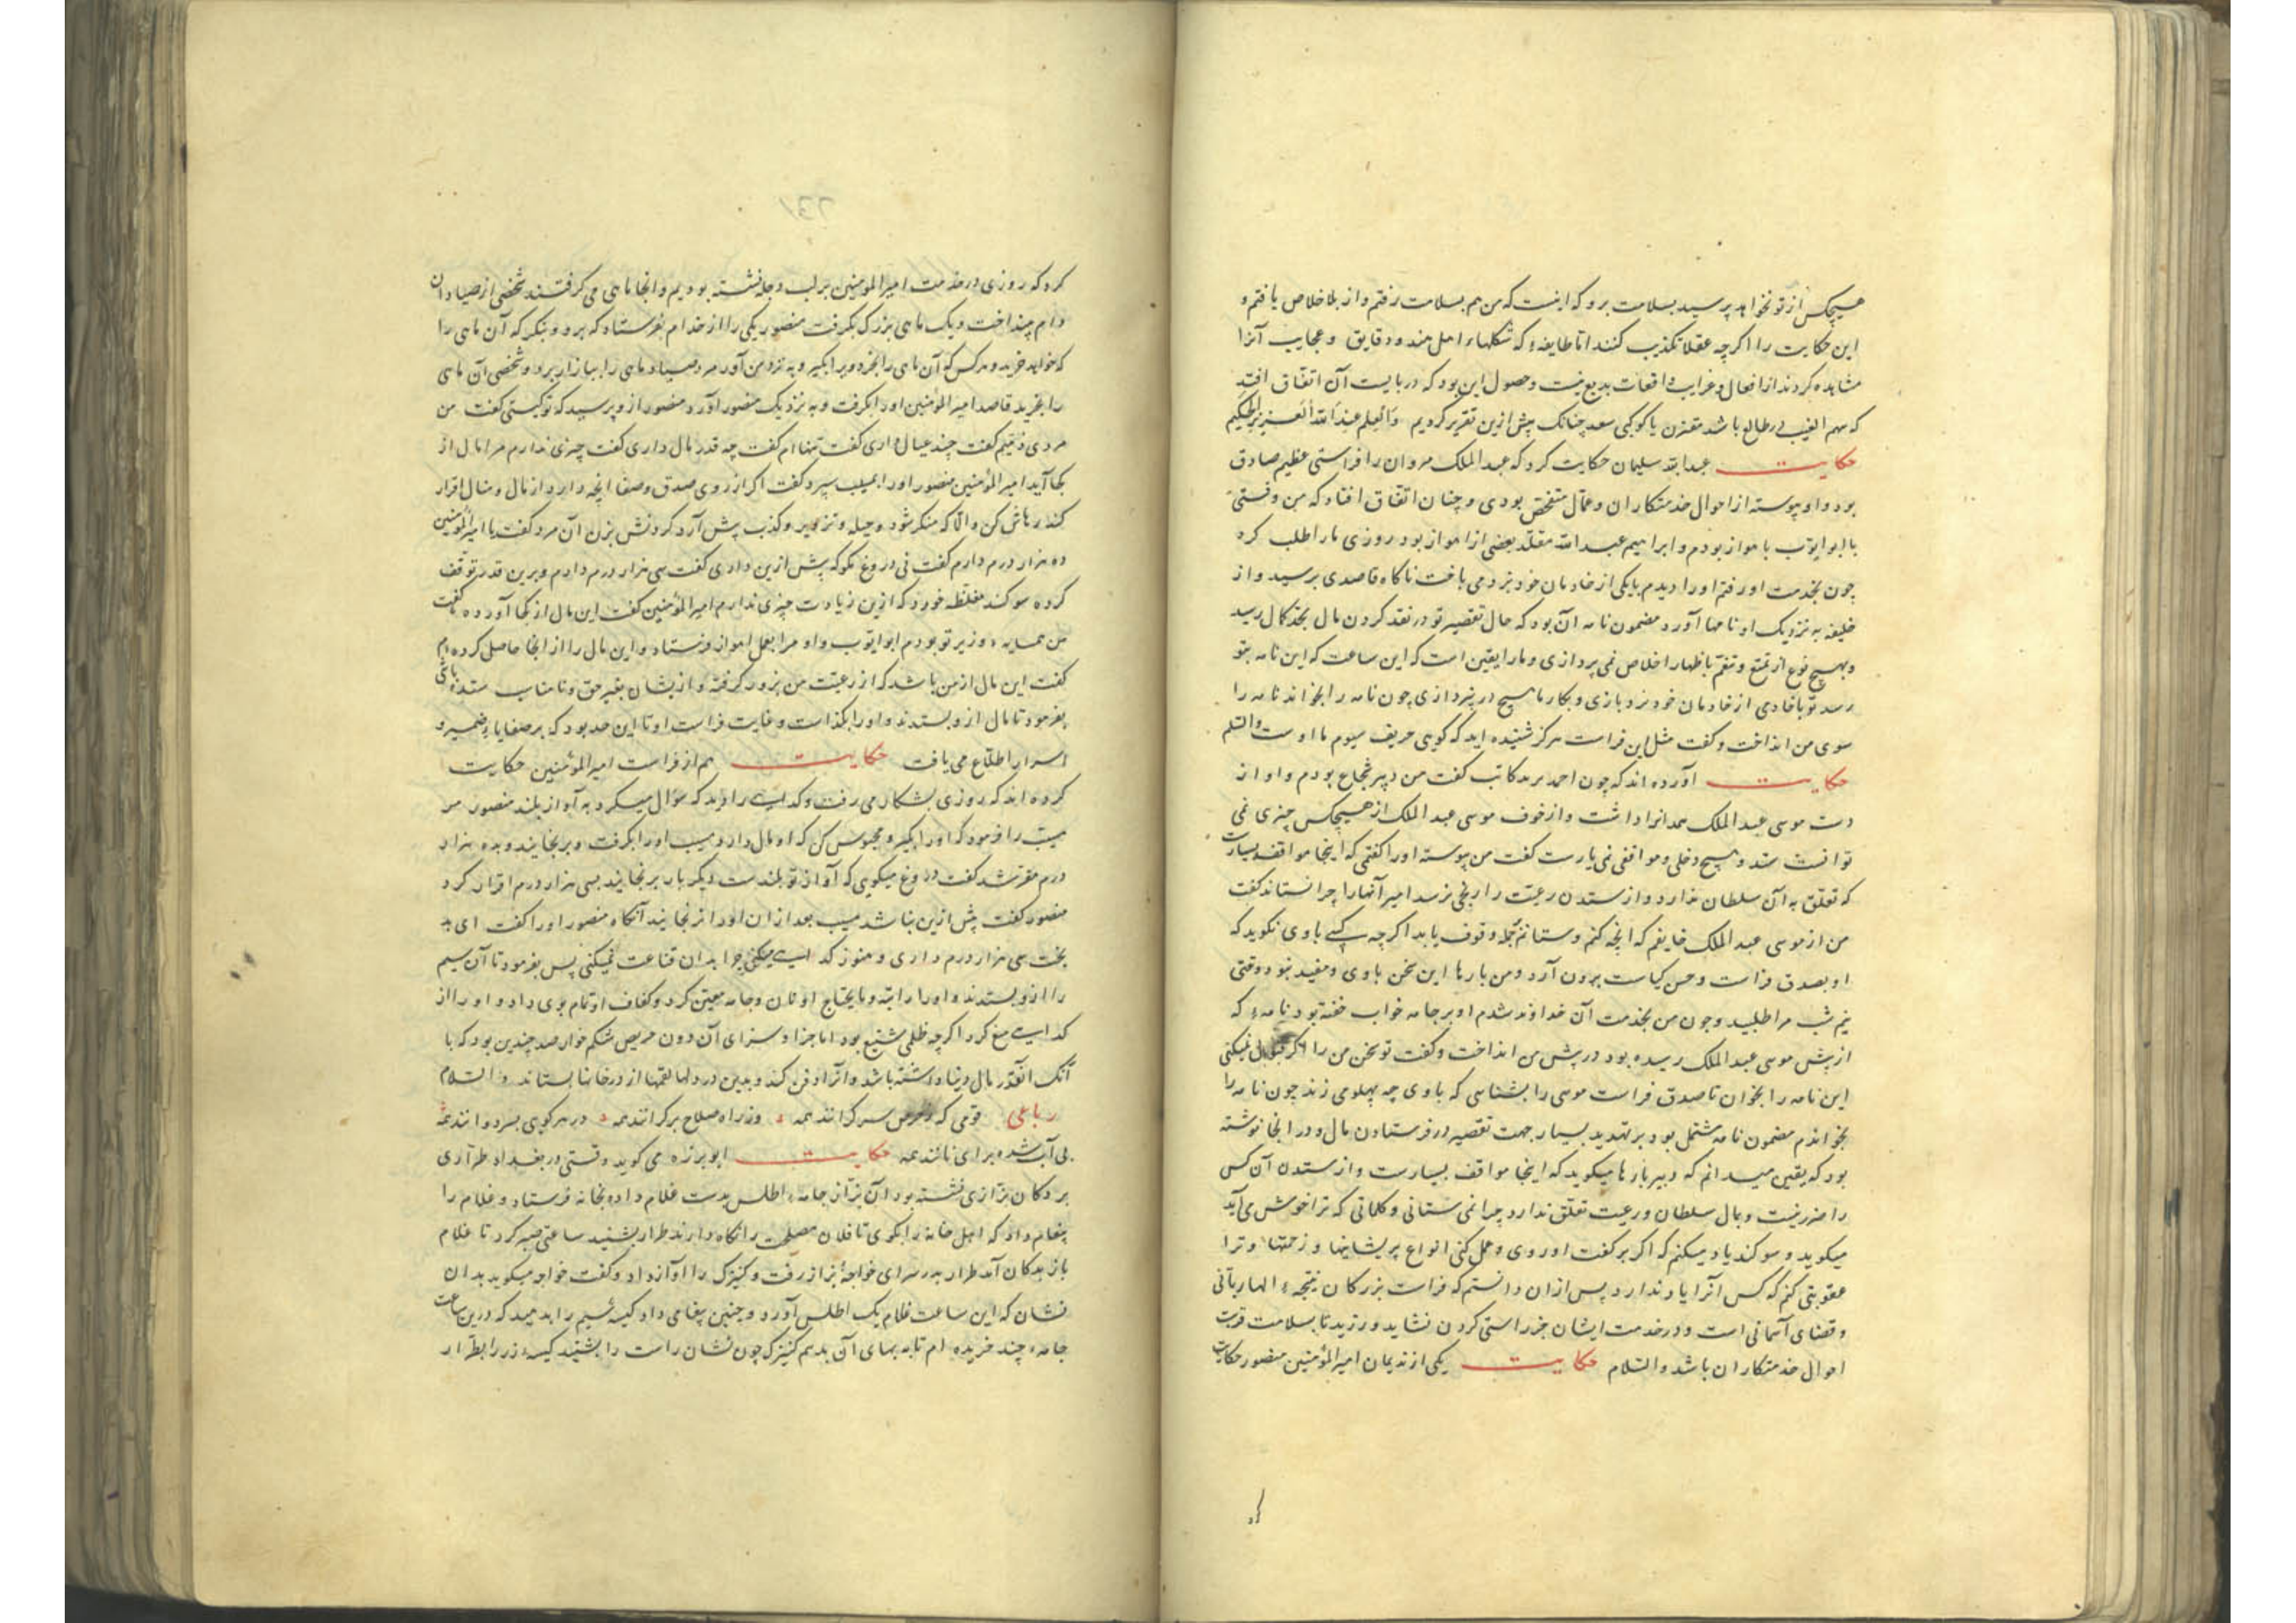 هیچکس از تو نخواهد پرسید بسلامت برو که اینست که من هم بسلامت رفتم و از بلا خلاص یافتم و
این حکایت را اگرچه عقلا تکذیب کنند اما طایفهٔ که شکلهاء اهل هند و دقایق و عجایب آنرا
مشاهده کردند از افعال و غرایب واقعات بدیع نیست و حصول این بود که دربایست آن اتفاق افتد
که سهم الغیب در طالع باشد مقترن با کوکبی سعد چنانک پیش ازین تقریر کردیم والعلم عند الله العزیز الحکیم
حکایت عبدالله سلیمان حکایت کرد که عبدالملک مروان را فراستی عظیم صادق
بود و او پیوسته از احوال خدمتکاران و عمال متفحص بودی و چنان اتفاق افتاد که من وقتی
با ابو ایوب باهواز بودم و ابراهیم عبدالله مقلد بعضی از اهواز بود روزی ما را طلب کرد
چون بخدمت او رفتم او را دیدم با یکی از خادمان خود نرد می باخت ناگاه قاصدی برسید و از
خلیفه به نزدیک او نامها آورد و مضمون نامه آن بود که حال تقصیر تو در نقد کردن مال بحد کمال رسید
و بهیچ نوع از تمتع و تنعم باظهار اخلاص نمی پردازی و ما را یقین است که این ساعت که این نامه بتو
رسد تو با خادمی از خادمان خود نرد بازی و بکار ما هیچ در نپردازی چون نامه را بخواند نامه را
سوی من انداخت و گفت مثل این فراست هرگز شنیده اید که گویی حریف سیوم ما اوست والسلم
حکایت آورده اند که چون احمد یزید کاتب گفت من دبیر شجاع بودم و او از
دست موسی عبدالملک همدانرا داشت و از خوف موسی عبدالملک از هیچکس چیزی نمی
توانست ستد و هیچ دخلی و موافقی نمی یارست گفت من پیوسته او را گفتمی که اینجا مواقف بسیارست
که تعلق به آن سلطان ندارد و از ستدن رعیت را رنجی نرسد امیر آنها را چرا نستاند گفت
من از موسی عبدالملک خایفم که آنچه کنم و ستانم جمله وقوف یابد اگرچه کسی باوی نگوید که
او بصدق فراست و حسن کیاست برون آرد و من بارها این سخن باوی و مفید نبود وقتی
نیم شب مرا طلبید و چون من بخدمت آن خداوند شدم او بر جامه خواب خفته بود نامهٔ که
از پیش موسی عبدالملک رسیده بود در پیش من انداخت و گفت تو سخن من را اگر قبول نمیکنی
این نامه را بخوان تا صدق فراست موسی را بشناسی که باوی چه پهلو می زند چون نامه را
بخواندم مضمون نامه مشتمل بود بر تهدید بسیار جهت تقصیر در فرستادن مال و در انجا نوشته
بود که یقین میدانم که دبیر بارها میگوید که اینجا مواقف بسیارست و از ستدن آن کس
را ضرر نیست و بمال سلطان و رعیت تعلق ندارد چرا نمی ستانی و کلماتی که ترا خوش می آید
میگوید و سوگند یاد میکنم که اگر بر گفت او روی و عمل کنی انواع پریشانیها و زحمتها و ترا
عقوبتی کنم که کس آنرا یاد ندارد پس ازان دانستم که فراست بزرگان نتیجهٔ الهام ربانی
و قضای آسمانی است و در خدمت ایشان جز راستی کردن نشاید ورزید تا بسلامت قرین
احوال خدمتکاران باشد والسلام حکایت یکی از ندیمان امیرالمؤمنین منصور حکایت
کرد که روزی در خدمت امیرالمومنین بر لب دجله نشسته بودیم و انجا ماهی می گرفتند شخصی از صیادان
دام بینداخت و یک ماهی بزرگ بگرفت منصور یکی را از خدام بفرستاد که برو و بنگر که آن ماهی را
که خواهد خرید و هر کس که آن ماهی را بخرد ویرا بگیر و به نزد من آور مرد صیاد ماهی را ببازار برد و شخصی آن ماهی
را بخرید قاصد امیرالمؤمنین او را بگرفت و به نزدیک منصور آورد منصور ازو پرسید که تو کیستی گفت من
مردی فقیرم گفت چند عیال داری گفت تنها ام گفت چه قدر مال داری گفت چیزی ندارم مرا مال از
کجا آید امیرالمؤمنین منصور او را بمسیب سپرد گفت اگر از روی صدق و صفا آنچه دارد از مال و منال اقرار
کند رهاش کن و الا که منکر شود و حیله و تزویر و کذب پیش آرد گردنش بزن آن مرد گفت یا امیرالمؤمنین
ده هزار درم دارم گفت نی دروغ مگو که پیش ازین داری گفت سی هزار درم دارم و برین قدر توقف
کرده سوگند مغلظه خورد که ازین زیادت چیزی ندارم امیرالمؤمنین گفت این مال از کجا آورده گفت
من همسایهٔ وزیر تو بودم ابو ایوب و او مرا بعمل اهواز فرستاد و این مال را از انجا حاصل کرده ام
گفت این مال از من باشد که از رعیت من بزور گرفته و ازیشان بغیر حق و نامناسب ستده باشی
بفرمود تا مال ازو بستدند و او را بگذاشت و غایت فراست او تا این حد بود که بر صفایاء ضمیر و
اسرار اطلاع می یافت حکایت هم از فراست امیرالمؤمنین حکایت
کرده اند که روزی بشکار می رفت و گدایی را دید که سؤال میکرد به آواز بلند منصور مر
مسیب را فرمود که او را بگیر و محبوس کن که او مال دارد مسیب او را بگرفت و برنجانید و بده هزار
درم مقر شد گفت دروغ میگویی که آواز تو بلندست دیگر بار برنجانید بسی هزار درم اقرار کرد
منصور گفت بیش ازین نباشد مسیب بعد ازان او را نرنجانید آنگاه منصور او را گفت ای بد
بخت سی هزار درم داری و هنوز گدایی میکنی چرا بدان قناعت نمیکنی پس بفرمود تا آن سیم
را ازو بستدند و او را راتبه و مایحتاج او نان و جامه معین کرد و کفاف او تمام بوی داد و او را از
گدایی منع کرد اگرچه ظلمی شنیع بود اما جزا و سزای آن دون حریص شکم خوار صد چندین بود که با
آنک آنقدر مال دنیا داشته باشد و آنرا دفن کند و بدین در و لها لقمها از درخانها بستاند والسلام
رباعی قومی که ز حرص سرگرانند همه وز راه صلاح برگرانند همه در هر کویی بسر دوانند همه
بی آب شده برای نانند همه حکایت ابو برزه می گوید وقتی در بغداد طراری
بر دکان بزازی نشسته بود آن بزاز جامهٔ اطلس بدست غلام داده بخانه فرستاد و غلام را
پیغام داد که اهل خانه را بگوی تا فلان مصلحت را نگاه دارند طرار بشنید ساعتی صبر کرد تا غلام
باز بدکان آمد طرار بدر سرای خواجهٔ بزاز رفت و کنیزک را آواز داد و گفت خواجه میگوید بدان
نشان که این ساعت غلام یک اطلس آورد و چنین پیغامی داد کیسهٔ سیم را بدهید که درین ساعت
جامهٔ چند خریده ام تا به بهای آن بدهم کنیزک چون نشان راست را بشنید کیسهٔ زر را بطرار